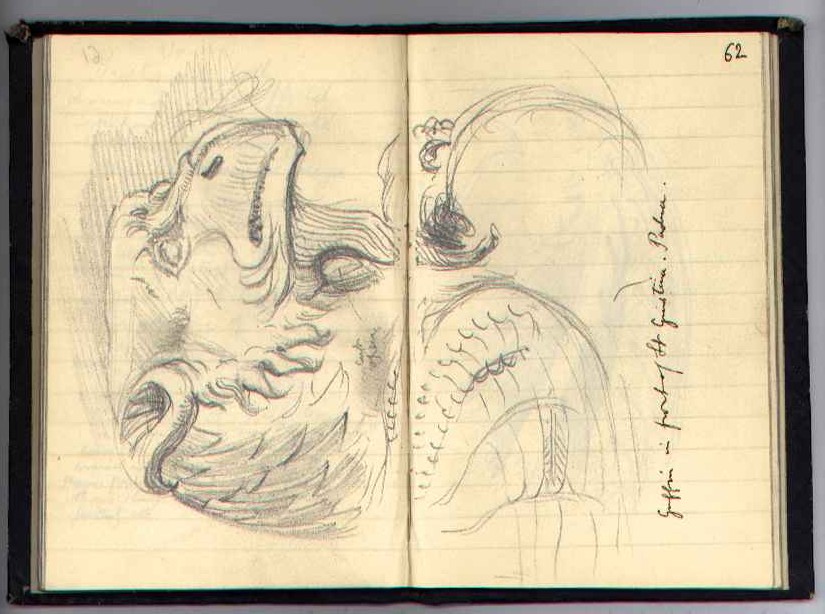 62
Griffin in front of St Giustina. Padua.